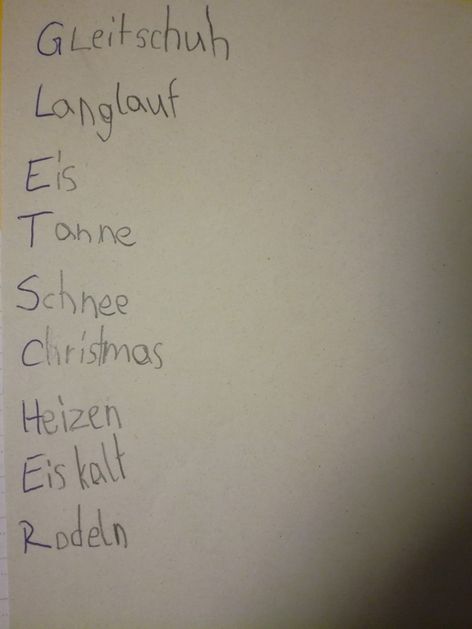 GLeitschuh
Langlauf
Eis
Tanne
Schnee
Christmas
Heizen
Eiskalt
Rodeln